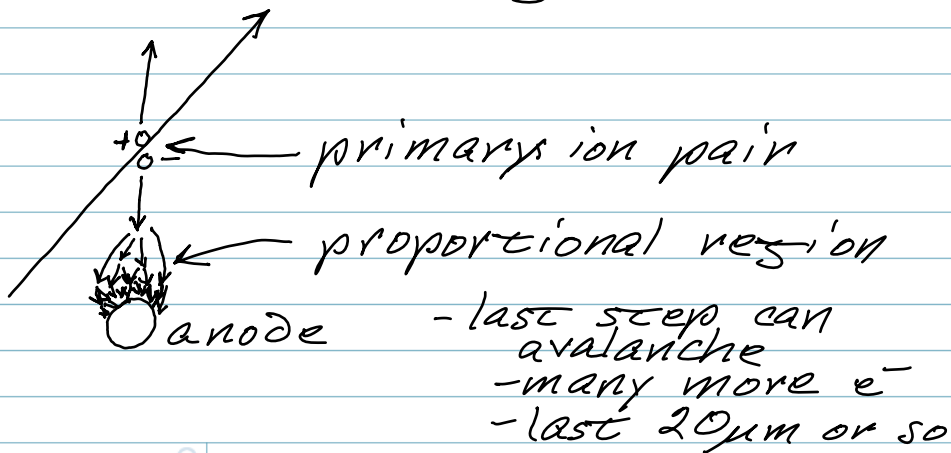 +
-
primarys ion pair
proportional region
anode
- last step can
avalanche
- many more e⁻
- last 20µm or so